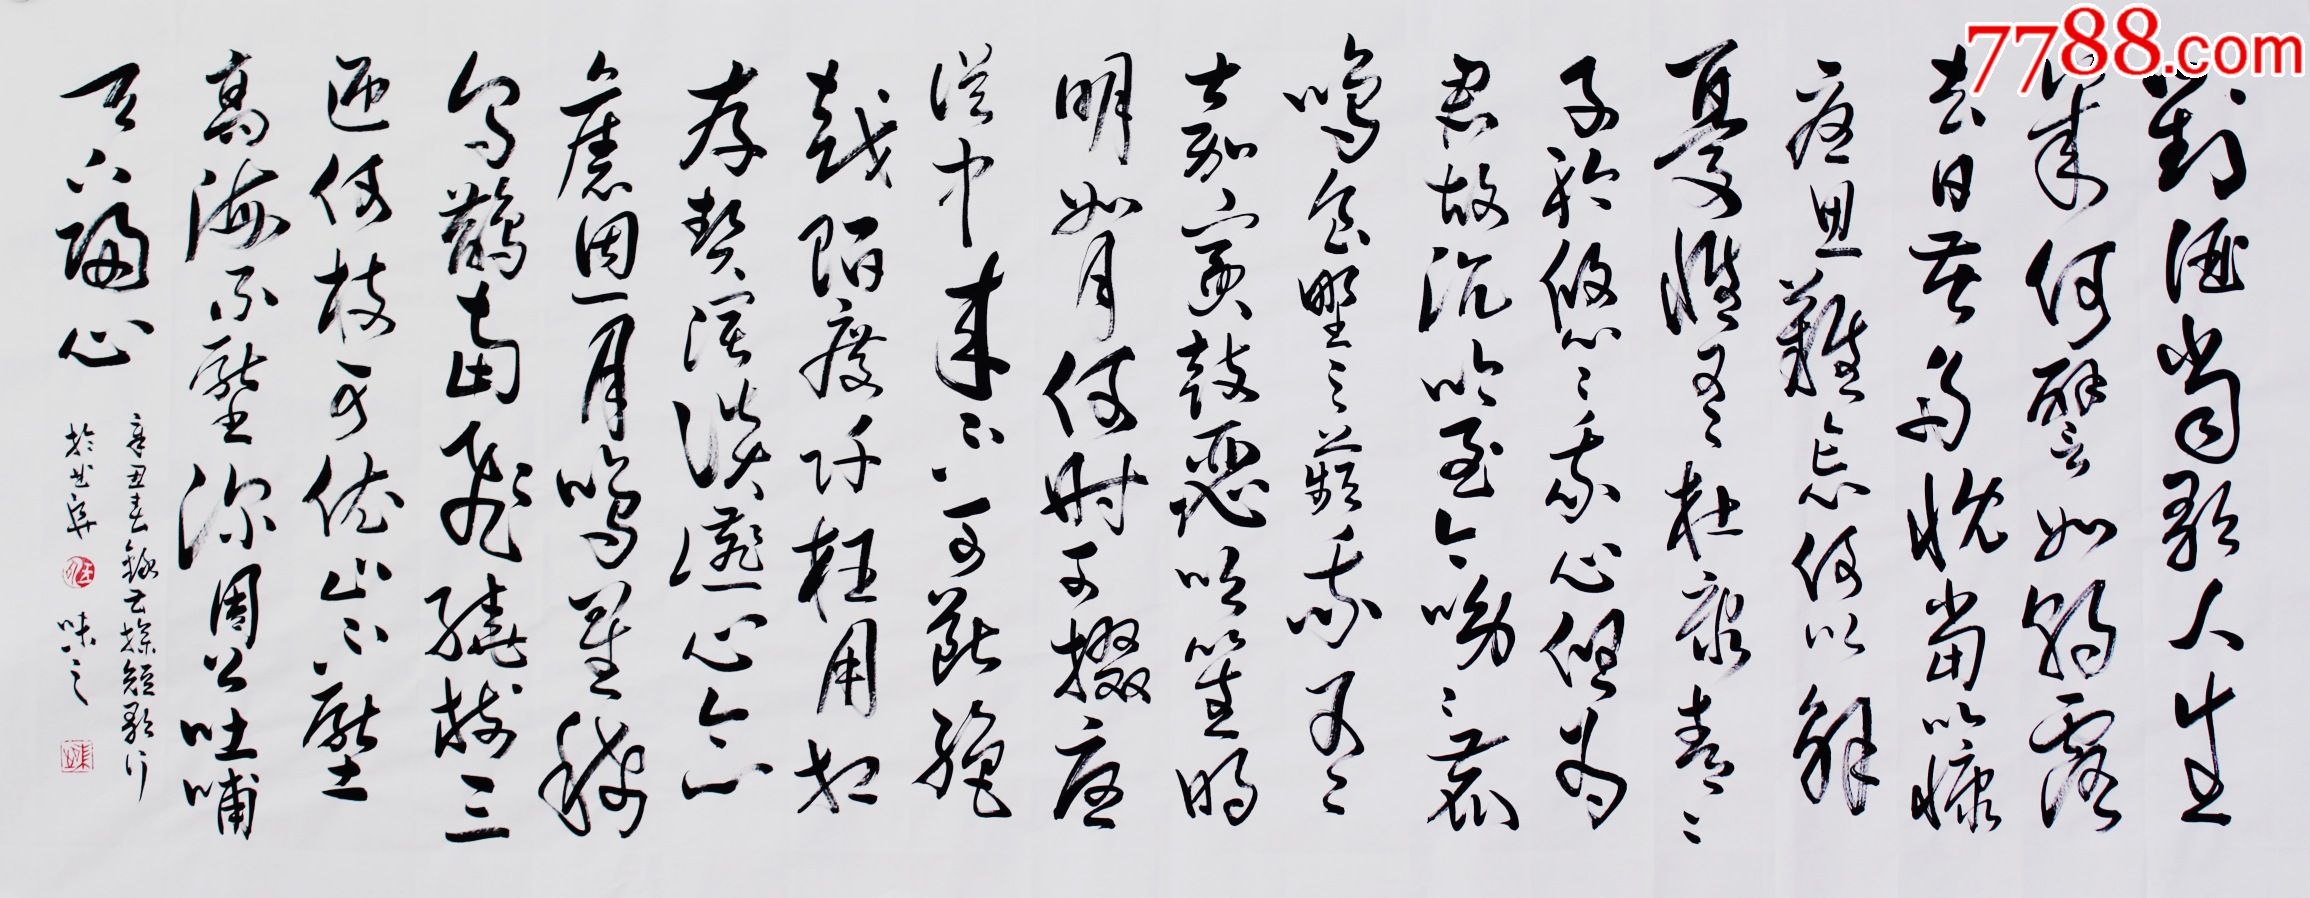 7788.com
對酒當歌人生
幾何譬如朝露
去日苦多慨當以慷
憂思難忘何以解
憂惟有杜康青々
子衿悠々我心但為
君故沉吟至今呦々鹿
鳴食野之蘋我有
嘉賓鼓瑟吹笙明
明如月何時可掇憂
從中來不可斷絕
越陌度阡枉用相
存契闊談讌心念
舊恩月明星稀
烏鵲南飛繞樹三
匝何枝可依山不厭
高海不厭深周公吐哺
天下歸心
辛丑春錄曹操短歌行
於曲阜 味之